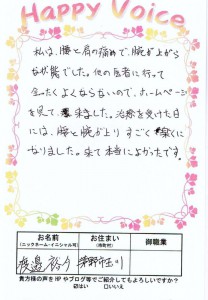 Happy Voice
私は、腰と肩の痛みで、腕が上がら
ない状態でした。他の医者に行って
全ったくよくならないので、ホームページ
を見て、来ました。治療を受けた日
には、腰と腕が上り すごく楽に
なりました。来て本当によかったです。
お名前
(ニックネーム・イニシャル可)
お住まい
(市町村)
御職業
渡邉
茅野市玉川
貴方様の声をHPやブログ等でご紹介してもよろしいですか?
はい
□いいえ